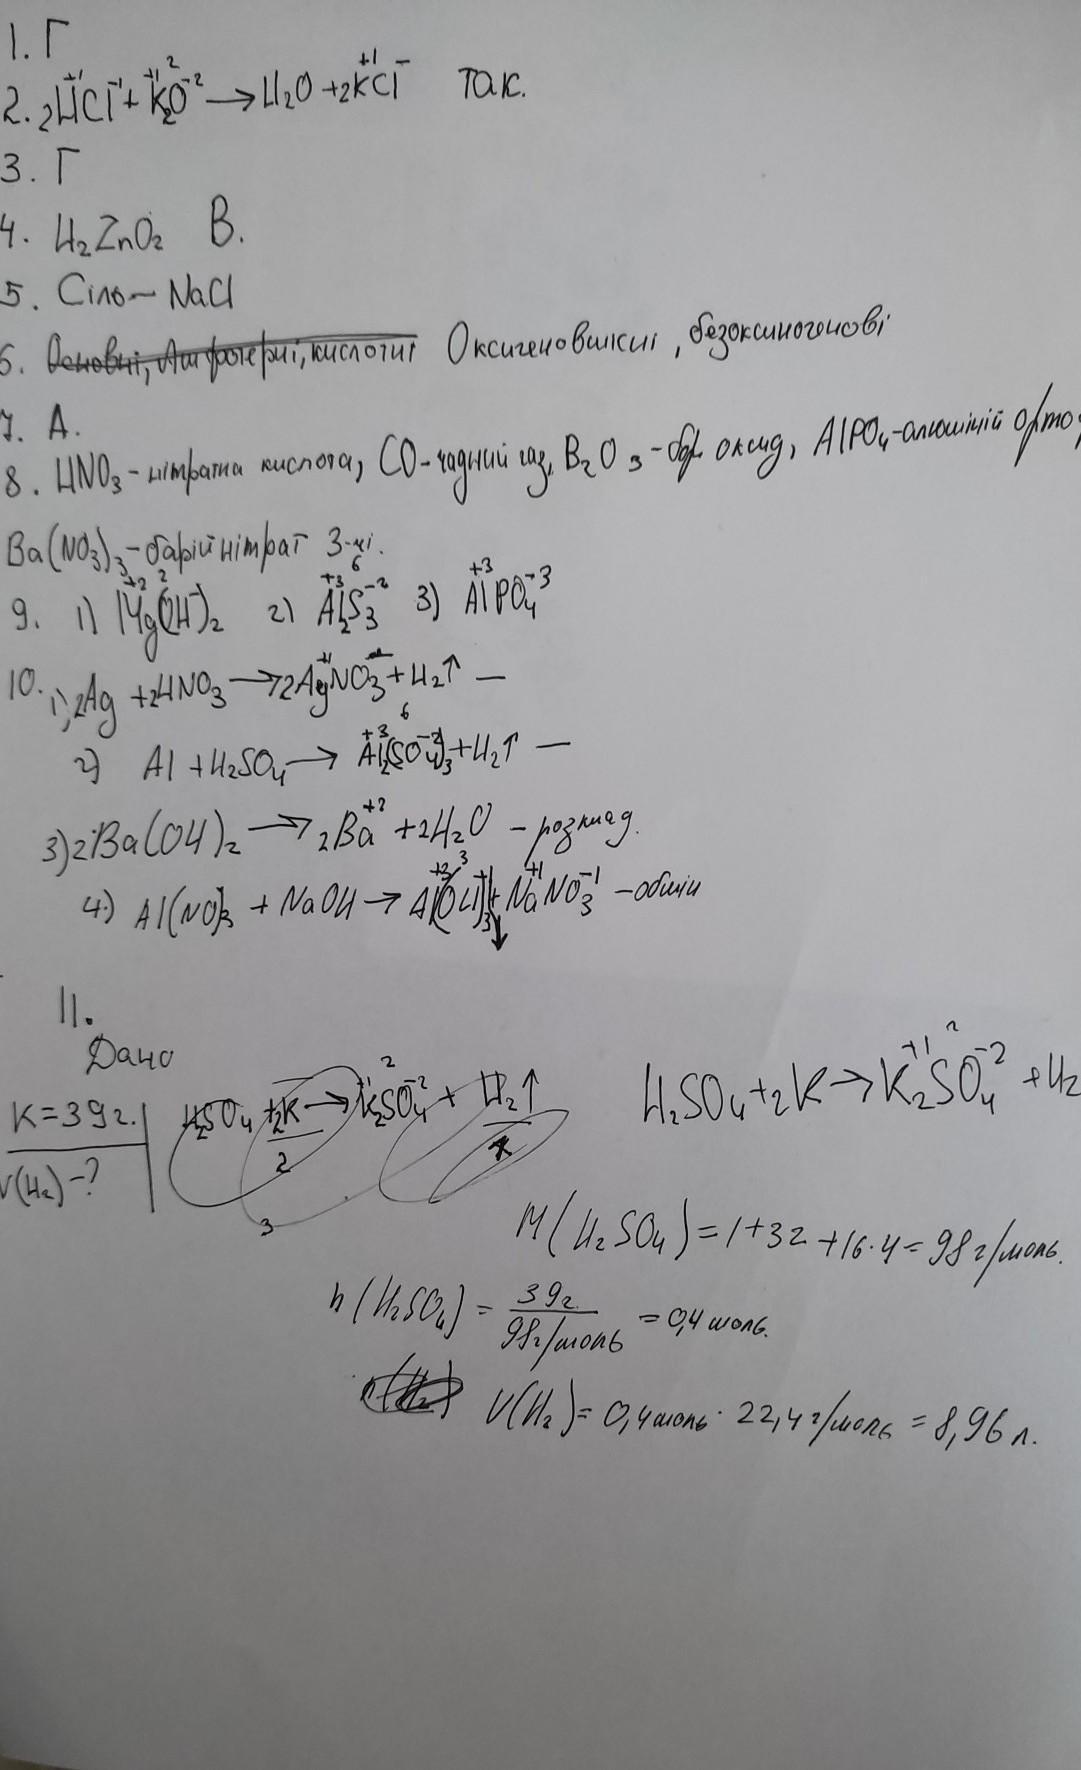 1. Г
2. 2H⁺¹Cl⁻¹ + K₂⁺¹O⁻² → H₂O + 2K⁺¹Cl⁻ Так.
3. Г
4. H₂ZnO₂ В.
5. Сіль — NaCl
6. Основні, Амфотерні, кислотні Оксигеновмісні, безоксигенові
7. А.
8. HNO₃ - нітратна кислота, CO - чадний газ, B₂O₃ - бор оксид, AlPO₄ - алюміній орто
Ba(NO₃)₃ - барій нітрат 3-ні.
9. 1) Mg⁺²(OH)₂ 2) Al₂⁺³S₃⁻² 3) Al⁺³PO₄⁻³
10. 1) 2Ag + 2HNO₃ → 2Ag⁺¹NO₃⁻ + H₂↑ —
2) Al + H₂SO₄ → Al₂⁺³(SO₄⁻²)₃ + H₂↑ —
3) 2Ba(OH)₂ → 2Ba⁺² + 2H₂O - розклад.
4) Al(NO)₃ + NaOH → Al⁺³(OH)₃↓ + Na⁺¹NO₃⁻¹ - обмін
11.
Дано
K = 39г. H₂SO₄ + 2K → K₂⁺¹SO₄⁻² + H₂↑ H₂SO₄ + 2K → K₂⁺¹SO₄⁻² + H₂
V(H₂) - ? 2 x
3
M(H₂SO₄) = 1 + 32 + 16·4 = 98 г/моль.
n(H₂SO₄) = 39г. / 98г/моль = 0,4 моль.
V(H₂) = 0,4 моль · 22,4 г/моль = 8,96 л.